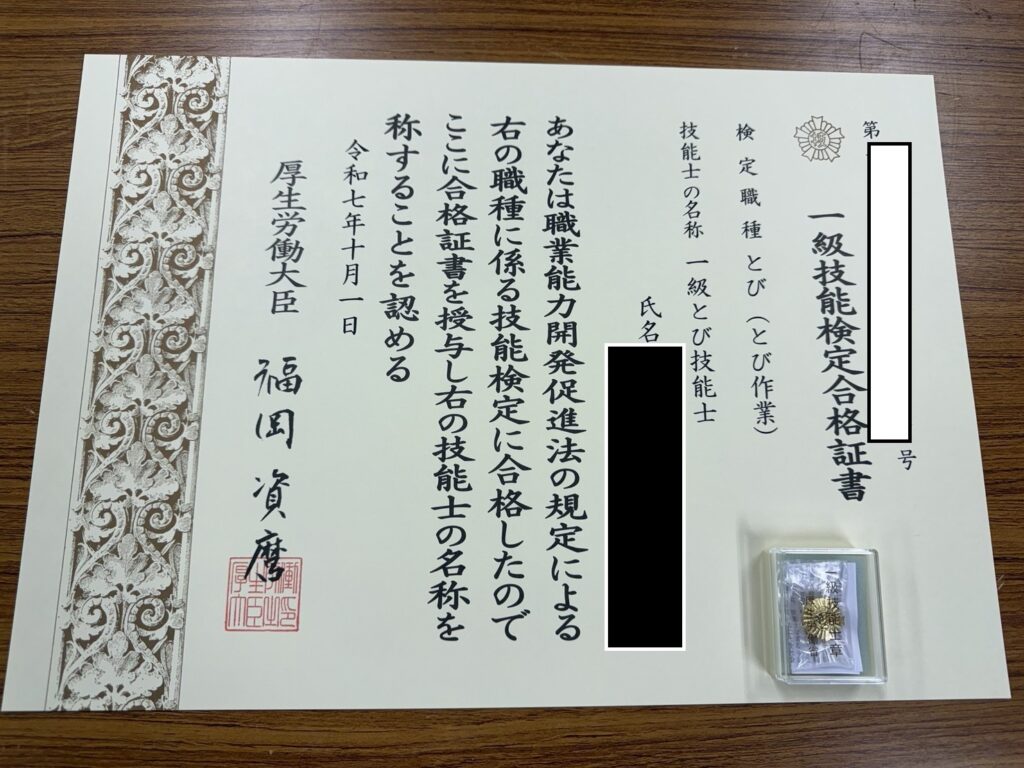 第
号
一級技能検定合格証書
検定職種 とび（とび作業）
技能士の名称 一級とび技能士
氏名
あなたは職業能力開発促進法の規定による
右の職種に係る技能検定に合格したので
ここに合格証書を授与し右の技能士の名称を
称することを認める
令和七年十月一日
厚生労働大臣 福岡資麿